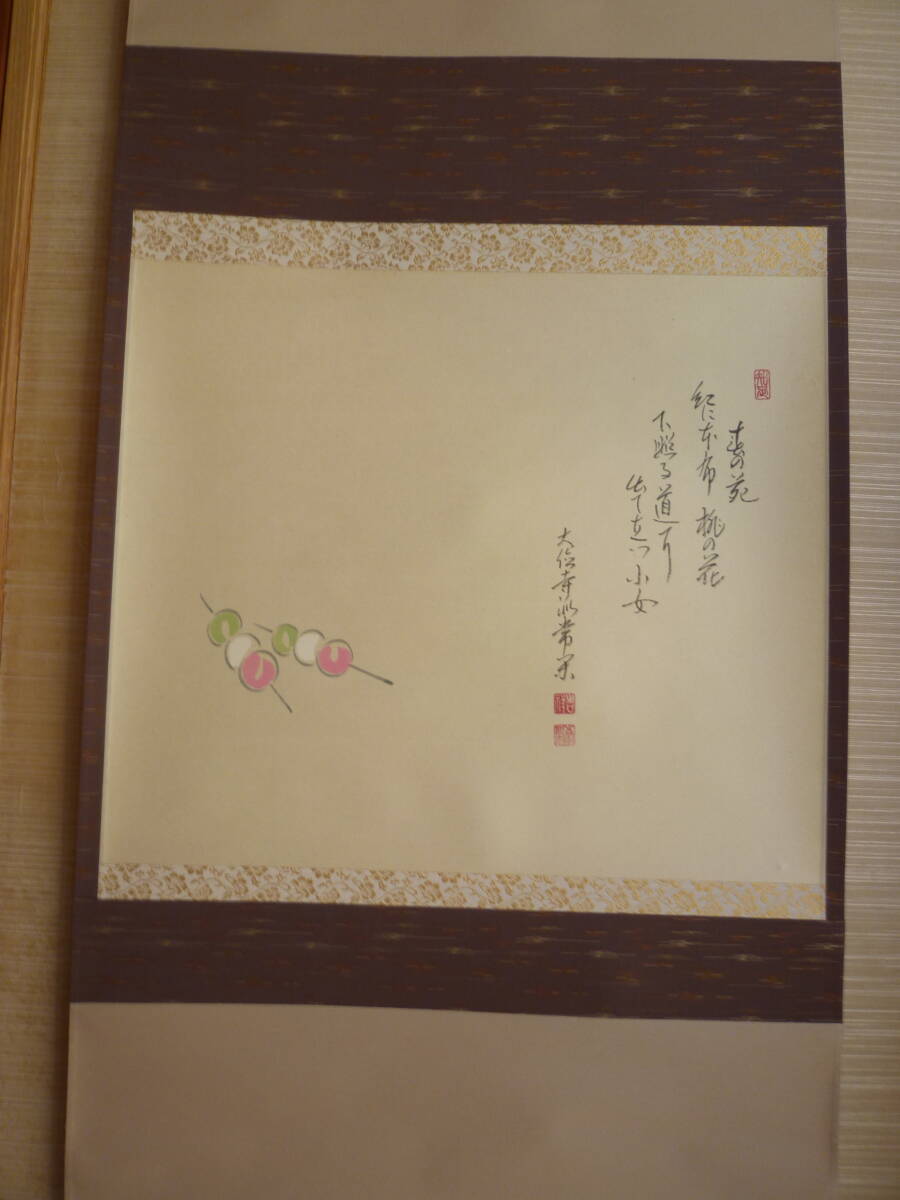 春の苑
紅にほ布 桃の花
下照る道に
出で立つ小女
大徳寺派常栄